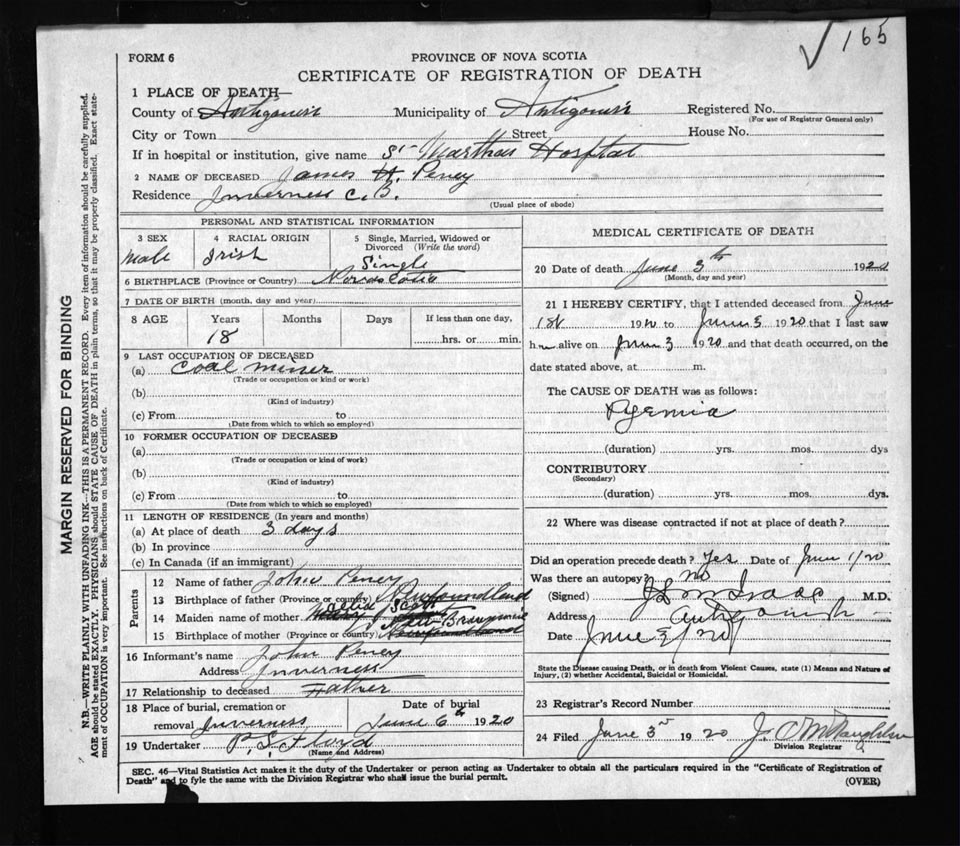 165
FORM 6
PROVINCE OF NOVA SCOTIA
CERTIFICATE OF REGISTRATION OF DEATH
1 PLACE OF DEATH—
County of Antigonish Municipality of Antigonish Registered No.
(For use of Registrar General only)
City or Town Street House No.
If in hospital or institution, give name St Marthas Hosptal
2 NAME OF DECEASED James H. Peney
Residence Inverness C.B.
(Usual place of abode)
MARGIN RESERVED FOR BINDING
N.B.—WRITE PLAINLY WITH UNFADING INK—THIS IS A PERMANENT RECORD. Every item of information should be carefully supplied.
AGE should be stated EXACTLY. PHYSICIANS should STATE CAUSE OF DEATH in plain terms, so that it may be properly classified. Exact state-
ment of OCCUPATION is very important. See instructions on back of Certificate.
PERSONAL AND STATISTICAL INFORMATION
3 SEX
Male
4 RACIAL ORIGIN
Irish
5 Single, Married, Widowed or
Divorced (Write the word)
Single
6 BIRTHPLACE (Province or Country) Nova Scotia
7 DATE OF BIRTH (month, day and year)
8 AGE Years Months Days If less than one day,
18 hrs. or min.
9 LAST OCCUPATION OF DECEASED
(a) Coal miner
(Trade or occupation or kind or work)
(b)
(Kind of industry)
(c) From to
(Date from which to which so employed)
10 FORMER OCCUPATION OF DECEASED
(a)
(Trade or occupation or kind of work)
(b)
(Kind of industry)
(c) From to
(Date from which to which so employed)
11 LENGTH OF RESIDENCE (In years and months)
(a) At place of death 3 days
(b) In province
(c) In Canada (if an immigrant)
Parents
12 Name of father John Peney
13 Birthplace of father (Province or country) Newfoundland
14 Maiden name of mother Scott
15 Birthplace of mother (Province or country) Newfoundland
16 Informant's name John Peney
Address Inverness
17 Relationship to deceased Father
18 Place of burial, cremation or
removal Inverness
Date of burial
June 6th 1920
19 Undertaker P.S. Floyd
(Name and Address)
MEDICAL CERTIFICATE OF DEATH
20 Date of death June 3th 1920
(Month, day and year)
21 I HEREBY CERTIFY, that I attended deceased from June
1st 1920 to June 3 1920 that I last saw
him alive on June 3 1920 and that death occurred, on the
date stated above, at m.
The CAUSE OF DEATH was as follows:
Pyemia
(duration) yrs. mos. dys
CONTRIBUTORY
(Secondary)
(duration) yrs. mos. dys.
22 Where was disease contracted if not at place of death?
Did an operation precede death? Yes Date of June 1/20
Was there an autopsy? no
(Signed) M.D.
Address Antigonish
Date June 3/20
State the Disease causing Death, or in death from Violent Causes, state (1) Means and Nature of
Injury, (2) whether Accidental, Suicidal or Homicidal.
23 Registrar's Record Number
24 Filed June 3rd 1920
Division Registrar
SEC. 46—Vital Statistics Act makes it the duty of the Undertaker or person acting as Undertaker to obtain all the particulars required in the "Certificate of Registration of
Death" and to fyle the same with the Division Registrar who shall issue the burial permit.
(OVER)